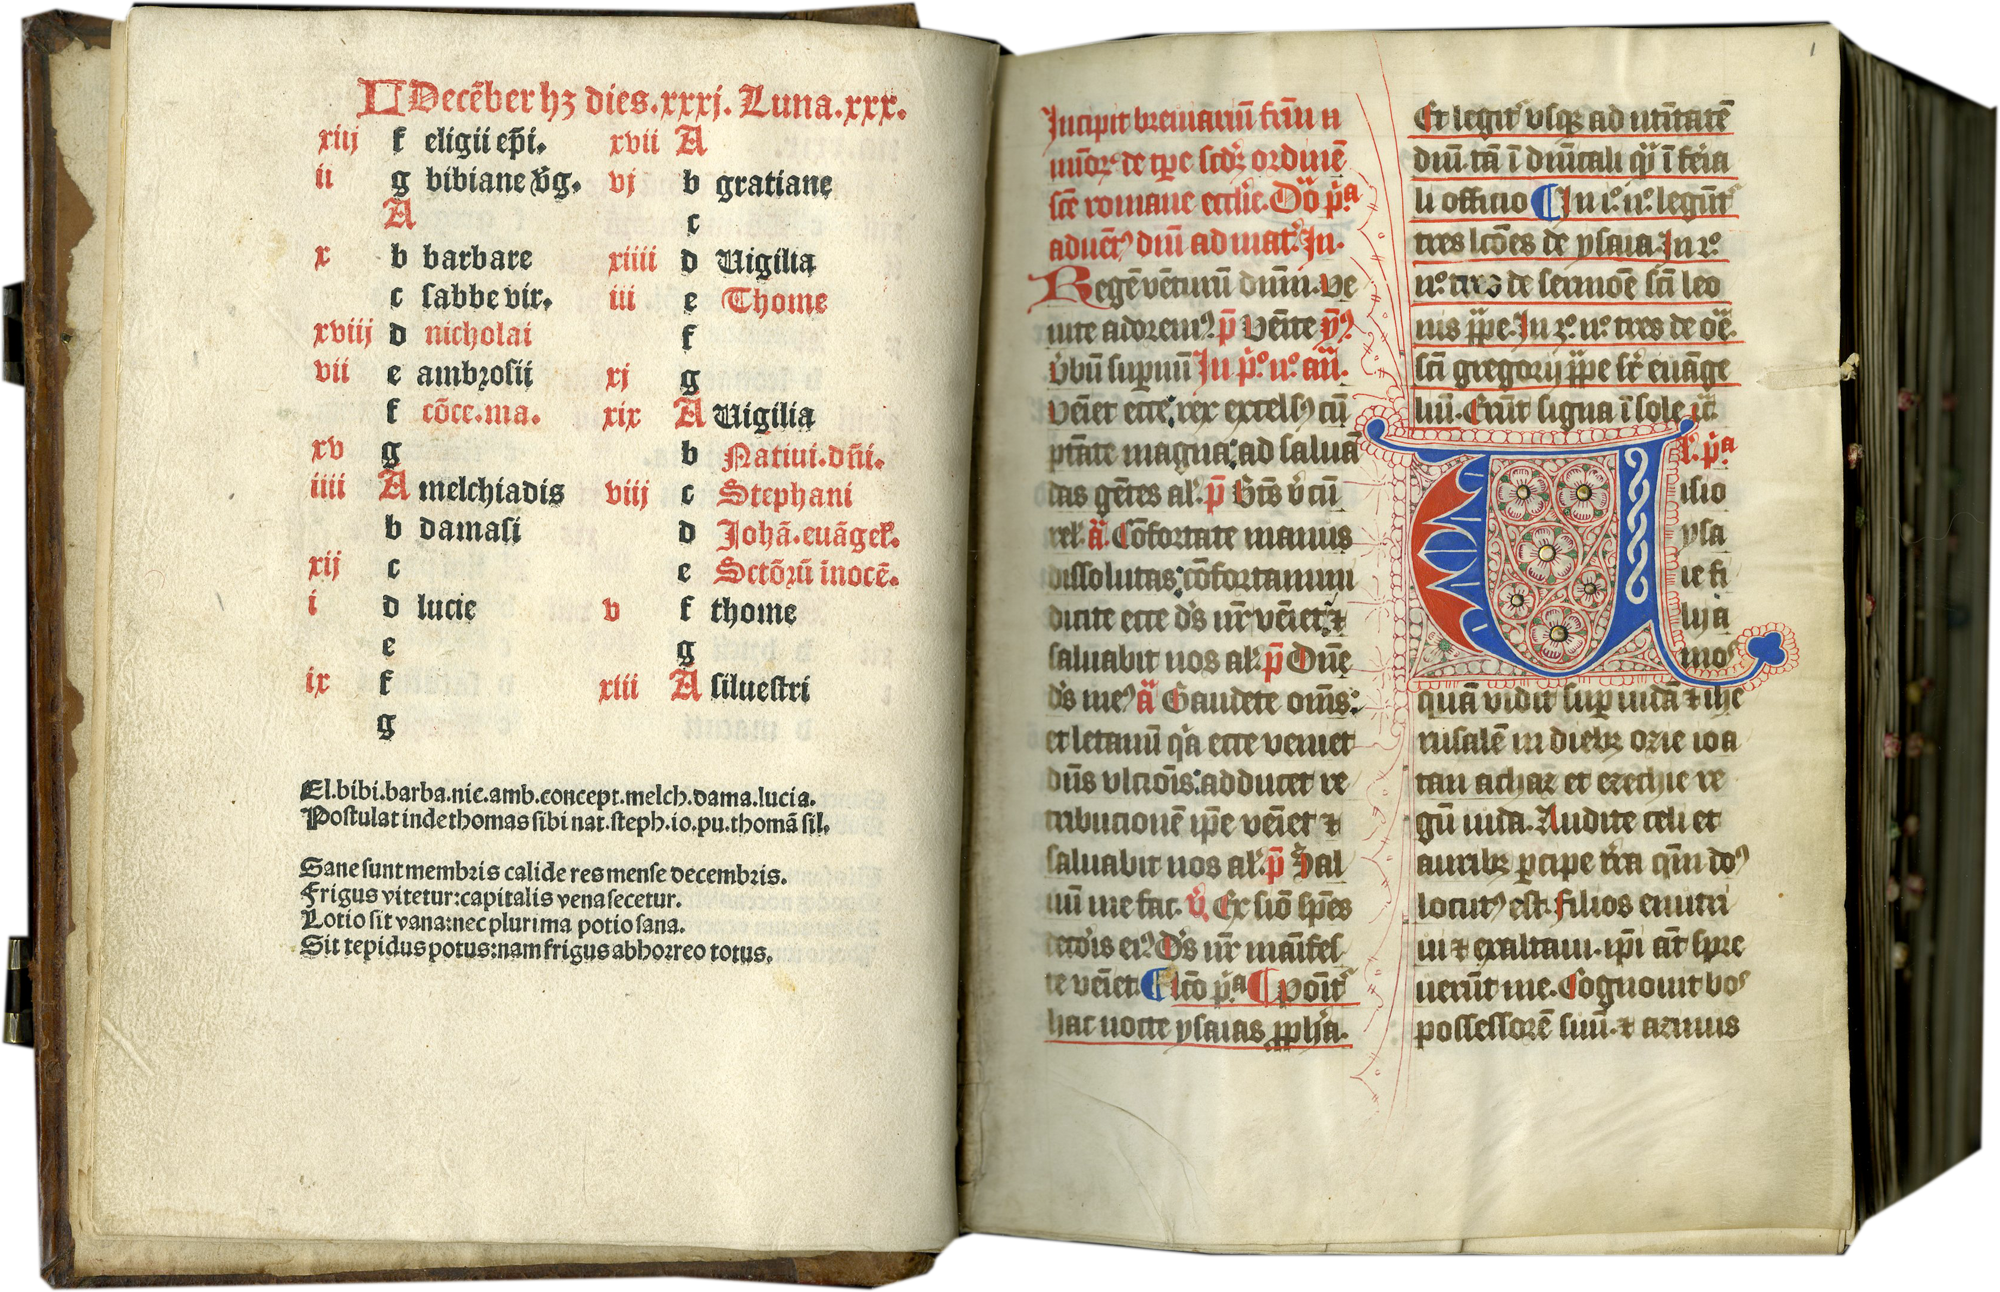 KL Decēber hȝ dies.xxxj. Luna.xxx.
xiij f eligii ep̄i.
ii g bibiane v̄g.
A
x b barbare
c sabbe vir.
xviij d nicholai
vii e ambrosii
f cōce.ma.
xv g
iiii A melchiadis
b damasi
xij c
i d lucie
e
ix f
g
xvii A
vj b gratiane
c
xiiii d Uigilia
iii e Thome
f
xj g
xix A Uigilia
b Natiui.dn̄i.
viij c Stephani
d Johā.euāgeł.
e Sctōꝝū īnocē.
v f thome
g
xiii A siluestri
El.bibi.barba.nic.amb.concept.melch.dama.lucia.
Postulat inde thomas sibi nat.steph.io.pu.thomā sil.
Sane sunt membris calide res mense decembris.
Frigus vitetur:capitalis vena secetur.
Lotio sit vana:nec plurima potio sana.
Sit tepidus potus:nam frigus abhorreo totus.
1
Incipit breuiariū frm̄ m
inōꝝ de tp̄e scd̄ꝫ ordinē
scē romane ecclīe. Dō p̄ᵃ
aduētꝰ dn̄i ad mat̄. In.
Regē vētuꝝ dn̄m. ve
nite adoremꝰ. p̄ Venite ẏꝰ
v̄bū supnū In p̄º nº añ.
Veniet ecce rex excelsꝰ cū
ptāte magna: ad saluā
das gētes al'. p̄ Btūs v̄ cū
rel'. ā Cōfortate manus
dissolutas: cōfortamini
dicite ecce d's nr̄ veniet ⁊
saluabit nos al'. p̄ Dn̄e
d's meꝰ ā Gaudete om̄s:
et letamī q̄a ecce veniet
dn̄s vlcōīs: adducet re
tribucionē ip̄e veniet ⁊
saluabit nos al'. p̄ Sal
uū me fac. v̄. Ex siō sp̄es
decōis eiꝰ. D's nr̄ māifes
te veniet. Lcō p̄ᵃ ponit̄
hac nocte ysaias ꝓpha.
Et legit̄ vsqꝫ ad natītatē
dn̄i. tā ī dn̄icali q̄ ī feria
li officio In pº nº legūt̄
tres lcōes de ysaia. In 2º
nº tres de sermōe scī leo
nis pp̄e. In 3º nº tres de oē.
scī gregorij pp̄e sr̄ euāge
liū. Erūt signa ī sole ⁊c̄.
l'. p̄ᵃ
Uisio
ysa
ie fi
lij a
mos
quā vidit sup iudā ⁊ ihe
rusalē in diebꝫ ozie ioa
tan achaz et ezechie re
gū iuda. Audite celi et
auribꝫ ꝑcipe t̄ra qm̄ dōs
locutꝰ est. Filios enutri
ui ⁊ exaltaui. ipī aūt spre
uerūt me. Cognouit bos
possessorē suū. ⁊ asinus